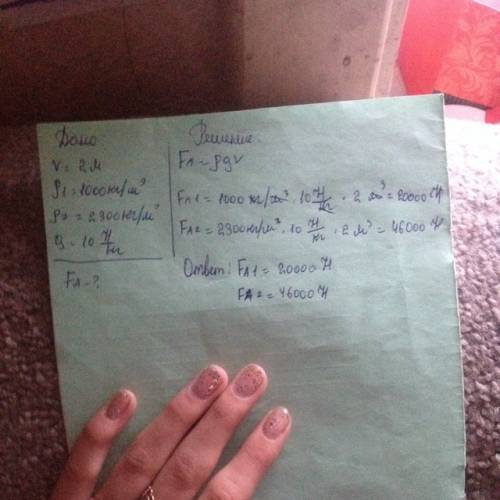 Дано
V = 2 м
ρ1 = 1000 кг/м³
ρ2 = 2300 кг/м³
g = 10 Н/кг
FA - ?
Решение:
FA = ρgV
FA1 = 1000 кг/м³ · 10 Н/кг · 2 м³ = 20000 Н
FA2 = 2300 кг/м³ · 10 Н/кг · 2 м³ = 46000 Н
Ответ: FA1 = 20000 Н
FA2 = 46000 Н